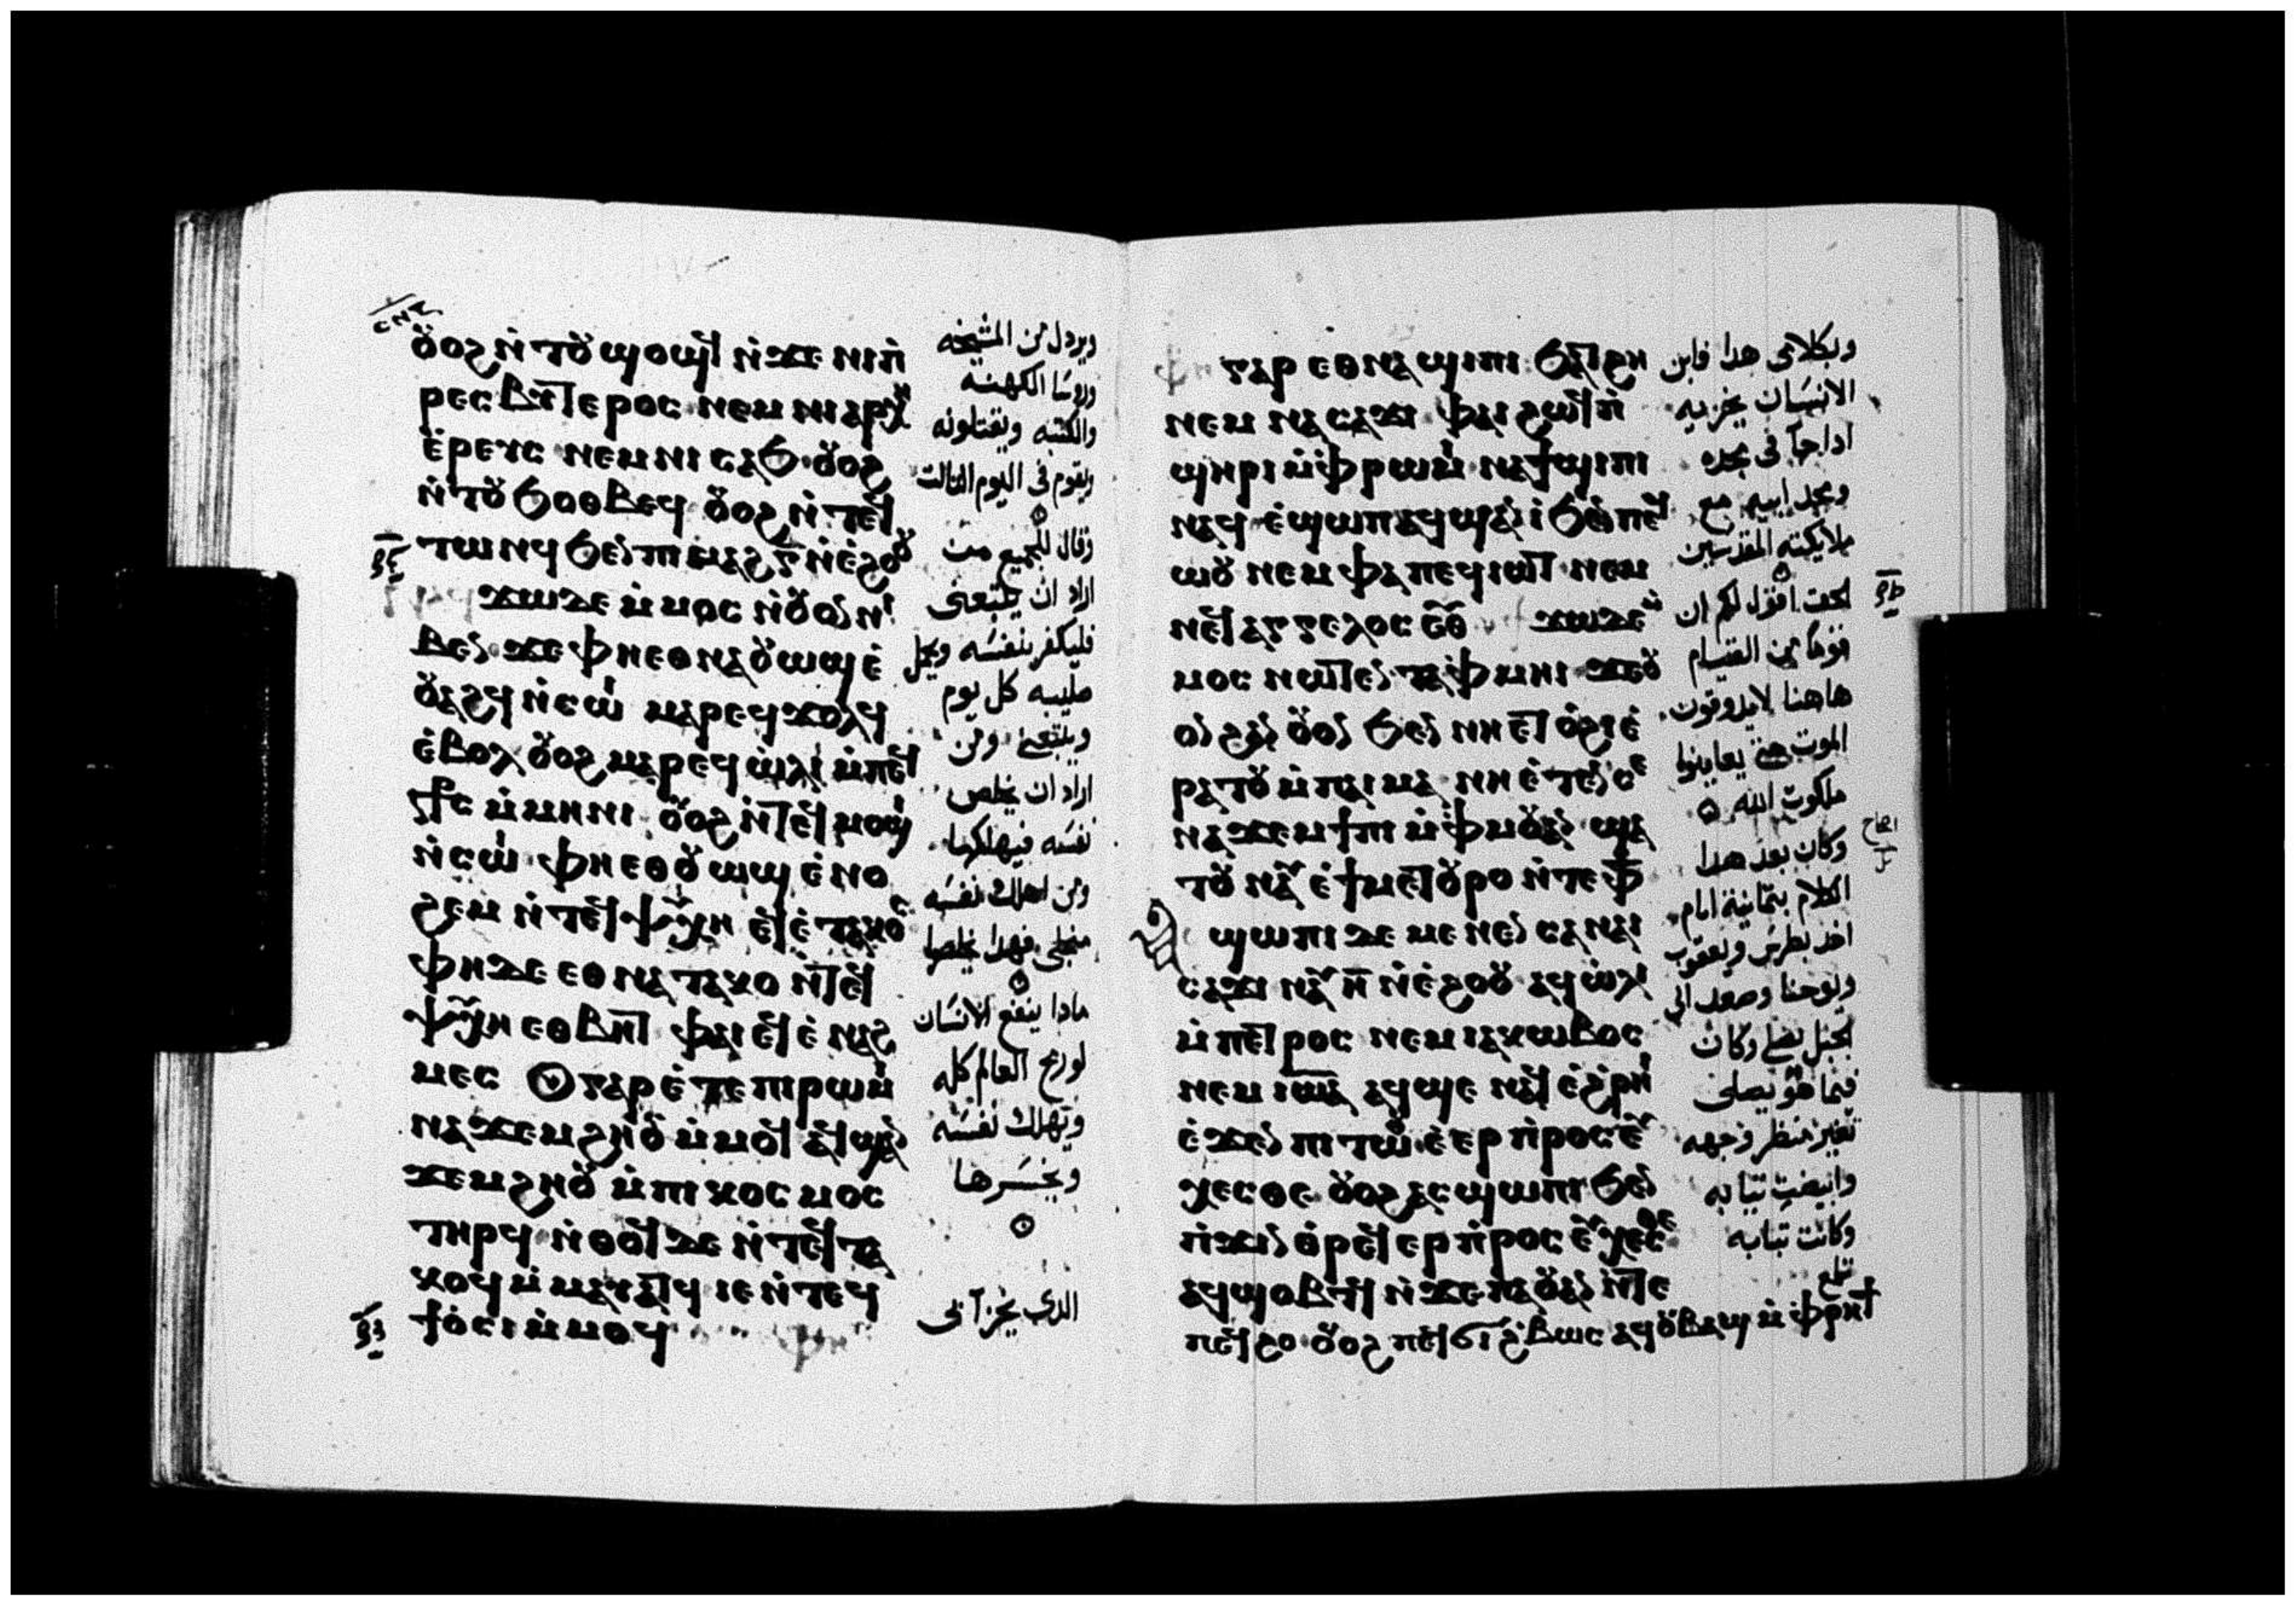 ⲟⲩⲟϩ ⲛ̀ⲧⲟⲩϣⲟϣϥ ⲛ̀ϫⲉ ⲛⲓⲡ̀
ⲣⲉⲥⲃⲩⲧⲉⲣⲟⲥ ⲛⲉⲙ ⲛⲓⲁⲣⲭⲏ
ⲉ̀ⲣⲉⲩⲥ ⲛⲉⲙ ⲛⲓⲥⲁϧ ⲟⲩⲟϩ
ⲛ̀ⲧⲟⲩϧⲟⲑⲃⲉϥ ⲟⲩⲟϩ ⲛ̀ⲧⲉϥ
ⲧⲱⲛϥ ϧⲉⲛ ⲡⲓⲙⲁϩ ⲅ̅ ⲛ̀ⲉ̀ϩⲟⲟⲩ
ϫⲱ ⲇⲉ ⲙ̀ⲙⲟⲥ ⲛ̀ⲟⲩⲟⲛ ⲛⲓ
ⲃⲉⲛ ϫⲉ ⲫⲏ ⲉⲑⲛⲁⲟⲩⲱϣ ⲉ̀
ⲟⲩⲁϩϥ ⲛ̀ⲥⲱⲓ̀ ⲙⲁⲣⲉϥϫⲟⲗϥ
ⲉ̀ⲃⲟⲗ ⲟⲩⲟϩ ⲙⲁⲣⲉϥⲱ̀ⲗⲓ ⲙ̀ⲡⲉϥ
ⲥ̀ⲧⲁⲩⲣⲟⲥ ⲙ̀ⲙⲏⲛⲓ ⲟⲩⲟϩ ⲛ̀ⲧⲉϥⲙⲟϣⲓ
ⲛ̀ⲥⲱⲓ̀ ⲫⲏ ⲉⲑⲟⲩⲱϣ ⲉ̀ⲛⲟ
ϩⲉⲙ ⲛ̀ⲧⲉϥⲯⲩⲭⲏ ⲉϥⲉ̀ⲧⲁⲕⲟⲥ
ⲫⲏ ⲇⲉ ⲉⲑⲛⲁⲧⲁⲕⲟ ⲛ̀ⲧⲉϥ
ⲯⲩⲭⲏ ⲉⲑⲃⲏⲧ ⲫⲁⲓ ⲉϥⲉ̀ⲛⲁϩ
ⲙⲉⲥ ⲟⲩ ⲅⲁⲣ ⲉ̀ⲧⲉ ⲡⲓⲣⲱⲙⲓ
ⲛⲁϫⲉⲙϩⲏⲟⲩ ⲙ̀ⲙⲟϥ ⲁϥϣⲁⲛ
ϫⲉⲙϩⲏⲟⲩ ⲙ̀ⲡⲓⲕⲟⲥⲙⲟⲥ
ⲧⲏⲣϥ ⲛ̀ⲑⲟϥ ⲇⲉ ⲛ̀ⲧⲉϥⲧⲁ
ⲕⲟϥ ⲙ̀ⲙⲁⲩⲁⲧϥ ⲓⲉ ⲛ̀ⲧⲉϥ
ϯⲟ̀ⲥⲓ ⲙ̀ⲙⲟϥ
ويردل من المشيخه
وروسا الكهنه
والكتبه ويقتلونه
ويقوم فى اليوم الثالث
وقال للجميع من
اراد ان يتبعنى
فليكفر بنفسه ويحمل
صليبه كل يوم
ويتبعنى ومن
اراد ان يخلص
نفسه فيهلكها
ومن اهلك نفسه
منجلى فهدا يخلصا
مادا ينفع الانسان
لو ربح العالم كله
ويهلك نفسه
ويخسرها
الدى يخزا انى
ⲅⲁⲣ ⲉⲑⲛⲁϣⲓⲡⲓ ϧⲁⲧϩⲏ
ⲛⲉⲙ ⲛⲁⲥⲁϫⲓ ⲫⲁⲓ ϩⲱϥ ⲡ̀
ϣⲏⲣⲓ ⲙ̀ⲫⲣⲱⲙⲓ ⲛⲁϯϣⲓⲡⲓ
ⲛⲁϥ ⲉ̀ϣⲱⲡ ⲁϥϣⲁⲛⲓ̀ ϧⲉⲛ ⲡⲉϥ
ⲱⲟⲩ ⲛⲉⲙ ⲫⲁ ⲡⲉϥⲓⲱⲧ ⲛⲉⲙ
ⲛⲉϥⲁⲅⲅⲉⲗⲟⲥ ⲉⲑⲩ ϫⲱ ⲇⲉ ⲙ̀
ⲙⲟⲥ ⲛⲱⲧⲉⲛ ⲧⲁⲫⲙⲏⲓ ϫⲉ ⲟⲩ
ⲟⲛ ϩⲁⲛ ⲟⲩⲟⲛ ϧⲉⲛ ⲛⲏ ⲉⲧⲟ̀ϩⲓ ⲉ̀
ⲣⲁⲧⲟⲩ ⲙ̀ⲡⲁⲓⲙⲁ ⲛⲏ ⲉ̀ⲧⲉⲛⲥⲉ
ⲛⲁϫⲉⲙϯⲡⲓ ⲙ̀ⲫⲙⲟⲩ ⲁⲛ ϣⲁ
ⲧⲟⲩⲛⲁⲩ ⲉ̀ϯⲙⲉⲧⲟⲩⲣⲟ ⲛ̀ⲧⲉ ⲫϯ
ϣⲱⲡⲓ ⲇⲉ ⲙⲉⲛⲉⲛⲥⲁ ⲛⲁⲓ
ⲥⲁϫⲓ ⲛⲁⲩ ⲏ̅ ⲛ̀ⲉ̀ϩⲟⲟⲩ ⲁϥⲱ̀ⲗⲓ
ⲙ̀ⲡⲉⲧⲣⲟⲥ ⲛⲉⲙ ⲓⲁⲕⲱⲃⲟⲥ
ⲛⲉⲙ ⲓⲱⲁ ⲁϥϣⲉ ⲛⲁϥ ⲉ̀ϩ̀ⲣⲏⲓ
ⲉ̀ϫⲉⲛ ⲡⲓⲧⲱⲟⲩ ⲉ̀ⲉⲣⲡ̀ⲣⲟⲥⲉⲩ
ⲭⲉⲥⲑⲉ ⲟⲩⲟϩ ⲁⲥϣⲱⲡⲓ ϧⲉⲛ
ⲡ̀ϫⲓⲛⲑ̀ⲣⲉϥⲉⲣⲡ̀ⲣⲟⲥⲉⲩⲭⲉⲥⲑⲉ
ⲁϥϣⲟⲃⲧϥ ⲛ̀ϫⲉ ⲡⲁⲟⲩⲁⲛ ⲛ̀ⲧⲉ
ⲡⲉϥϩⲟ ⲟⲩⲟϩ ⲡⲉϥϭⲓϩ̀ⲃⲱⲥ ⲁϥⲟⲩⲃⲁϣ ⲙ̀ⲫⲣⲏϯ
وبكلامى هدا فابن
الانسان يخزيه
اداجآ فى مجده
ومجد ابيه مع
ملايكته المقدسين
الحق اقول لكم ان
قوما من القيام
هاهنا لايدوقون
الموت حتى يعاينوا
ملكوت الله
وكان بعد هدا
الكلام بتمانية ايام
اخد بطرس ويعقوب
ويوحنا وصعد الى
الجبل يصلى وكان
فيما هو يصلى
تغير منظر وجهه
وابيضت تيابه
وكانت تيابه
تلمع
اصحاح